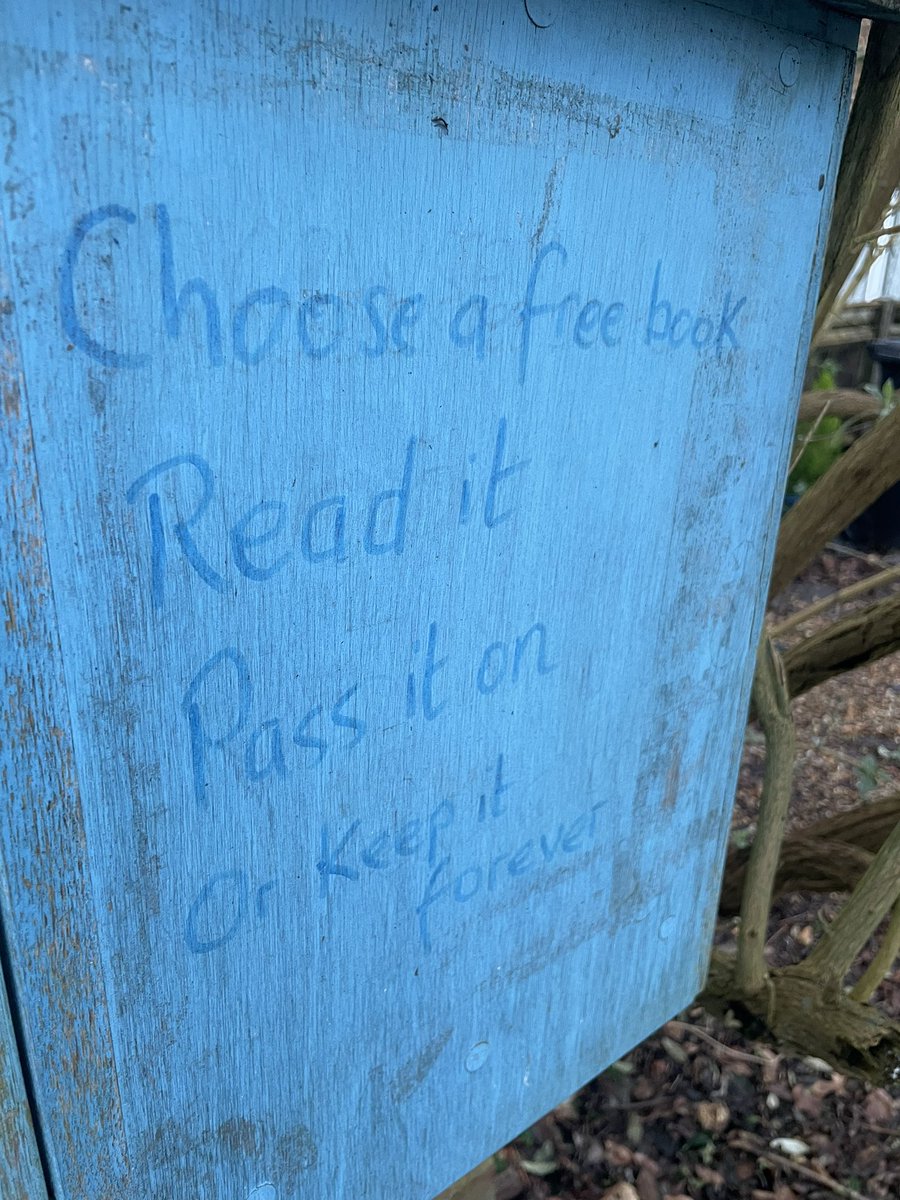 Choose a free book
Read it
Pass it on
Or Keep it
forever